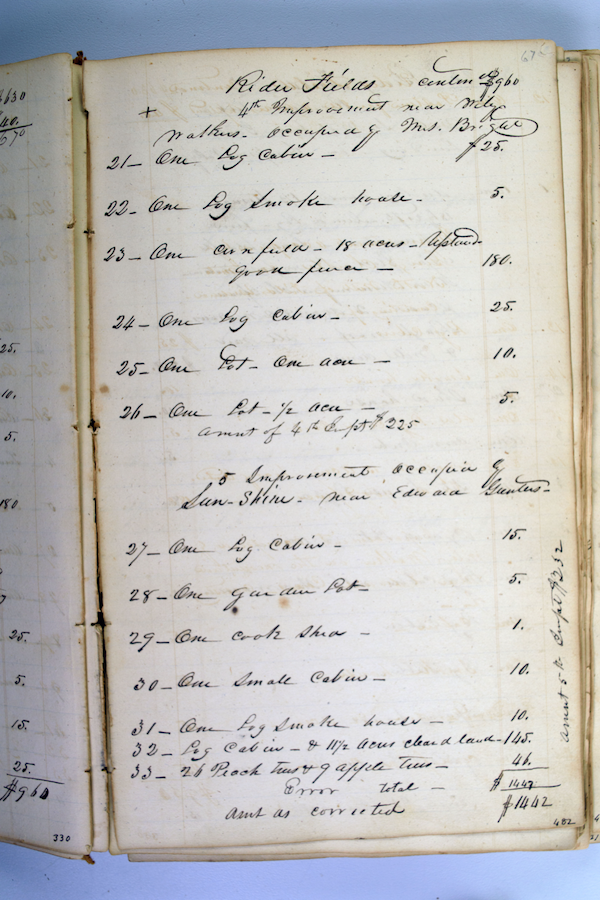 $630
40.
670
25.
10.
5.
180.
25.
5.
15.
25.
$960
330
Rider Fields $960
+ 4th Improvement near
Walkers. occupied by Mrs. Bright
21 - One Log Cabin - $25.
22 - One Log Smoke house - 5.
23 - One cornfield - 18 acres - Upland
good fence - 180.
24 - One Log Cabin - 25.
25 - One Lot - One acre - 10.
26 - One Lot - 1/2 acre - 5.
amnt of 4th Impt $225
5 Improvement occupied by
Sun-Shine - near Edward Gunters -
27 - One Log Cabin - 15.
28 - One garden Lot - 5.
29 - One cook shed - 1.
30 - One Small Cabin - 10.
31 - One Log Smoke house - 10.
32 - Log Cabin - & 11 1/2 acres cleard land - 145.
33 - 26 Peach trees & 9 apple trees - 46.
Error total - $1447
amt as corrected $1442
amnt 5th Impt $232
482